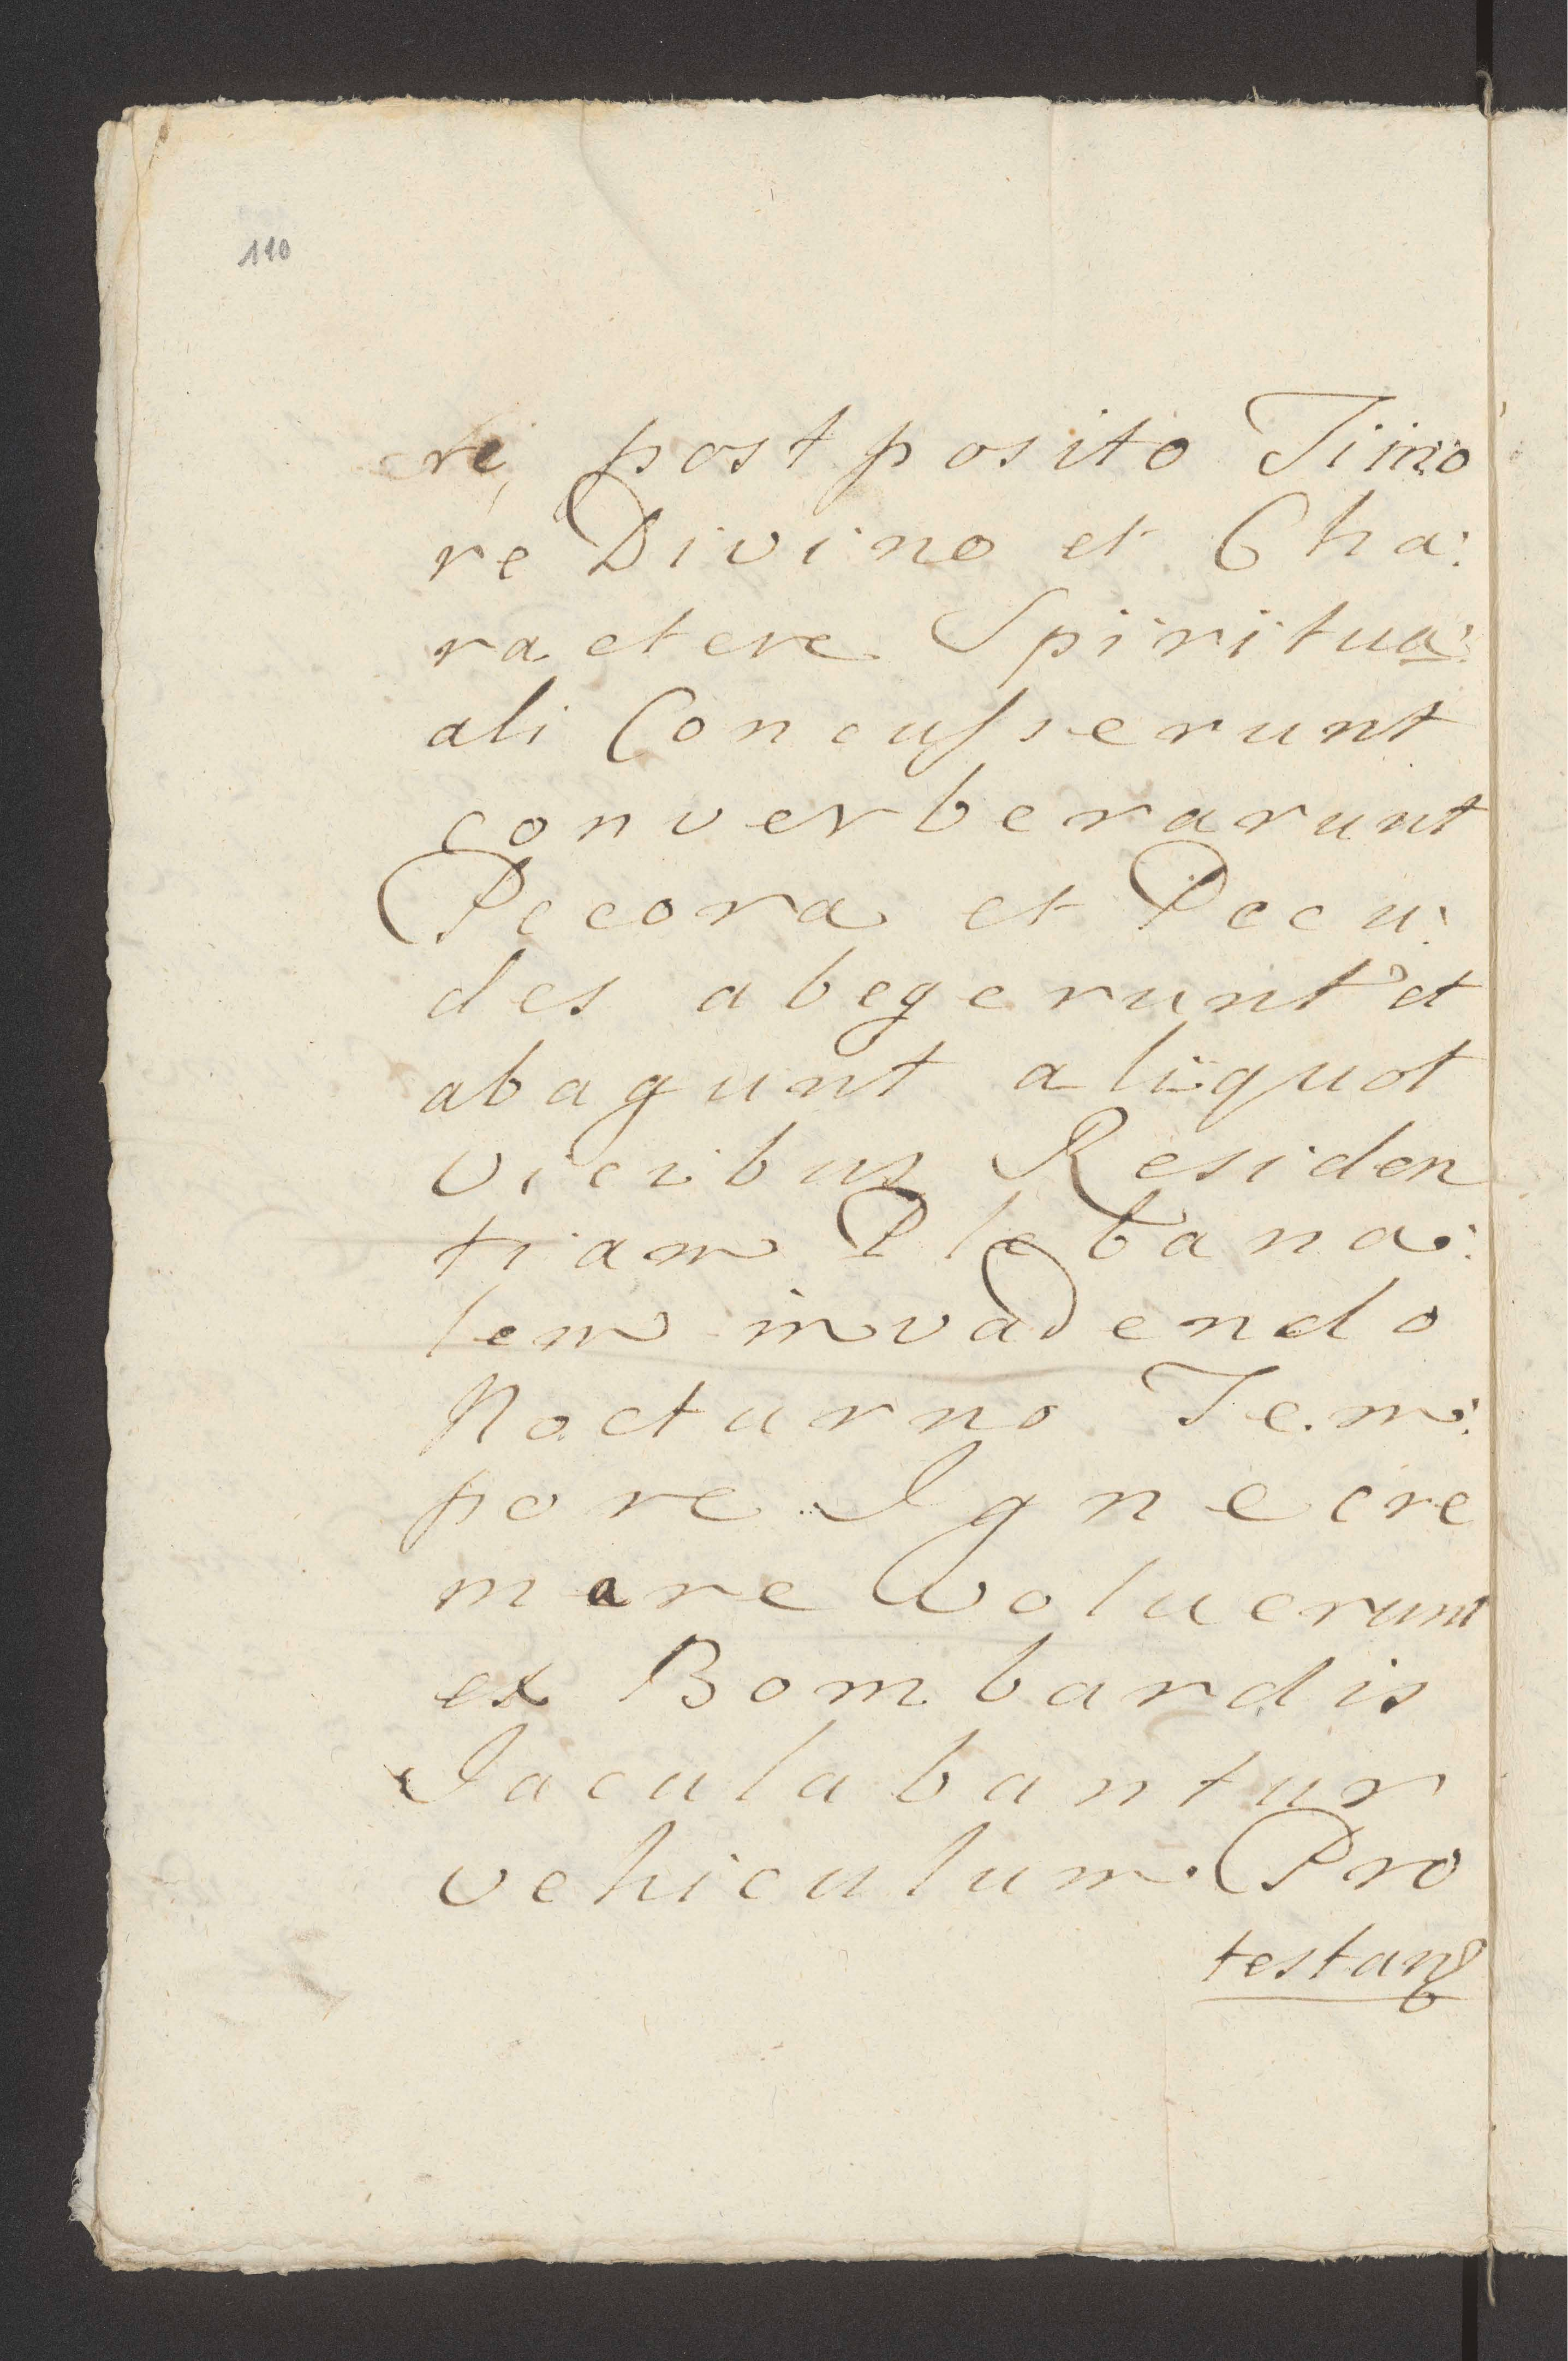 110
re, post posito Timo
re Divino et Cha:
ractere Spiritua:
ali Concusserunt
converberarunt
Pecora et Pecu:
des abegerunt et
abagunt aliquot
vicibus Residen
tiam Plebana:
lem invadendo
Nocturno Tem:
pore Igne cre
mare woluerunt
ex Bombardis
Jaculabantur
vehiculum. Pro